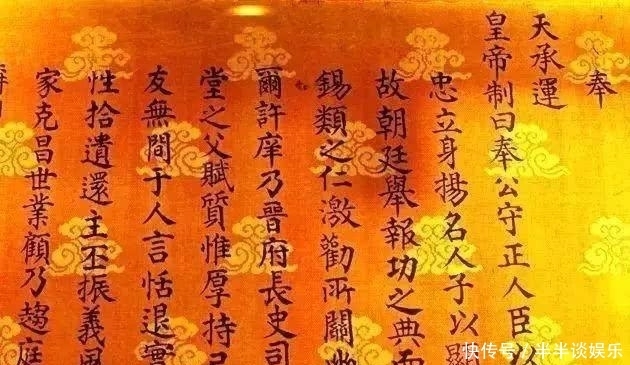 奉
天承運
皇帝制曰奉公守正人臣以
忠立身揚名人子以顯
故朝廷舉報功之典而
錫類之仁激勸所關
爾許庠乃晉府長史司
堂之父賦質惟厚持己
友無間于人言恬退實
性拾遺還主丕振義風
家克昌世業顧乃趨庭
快传号/半半谈娱乐